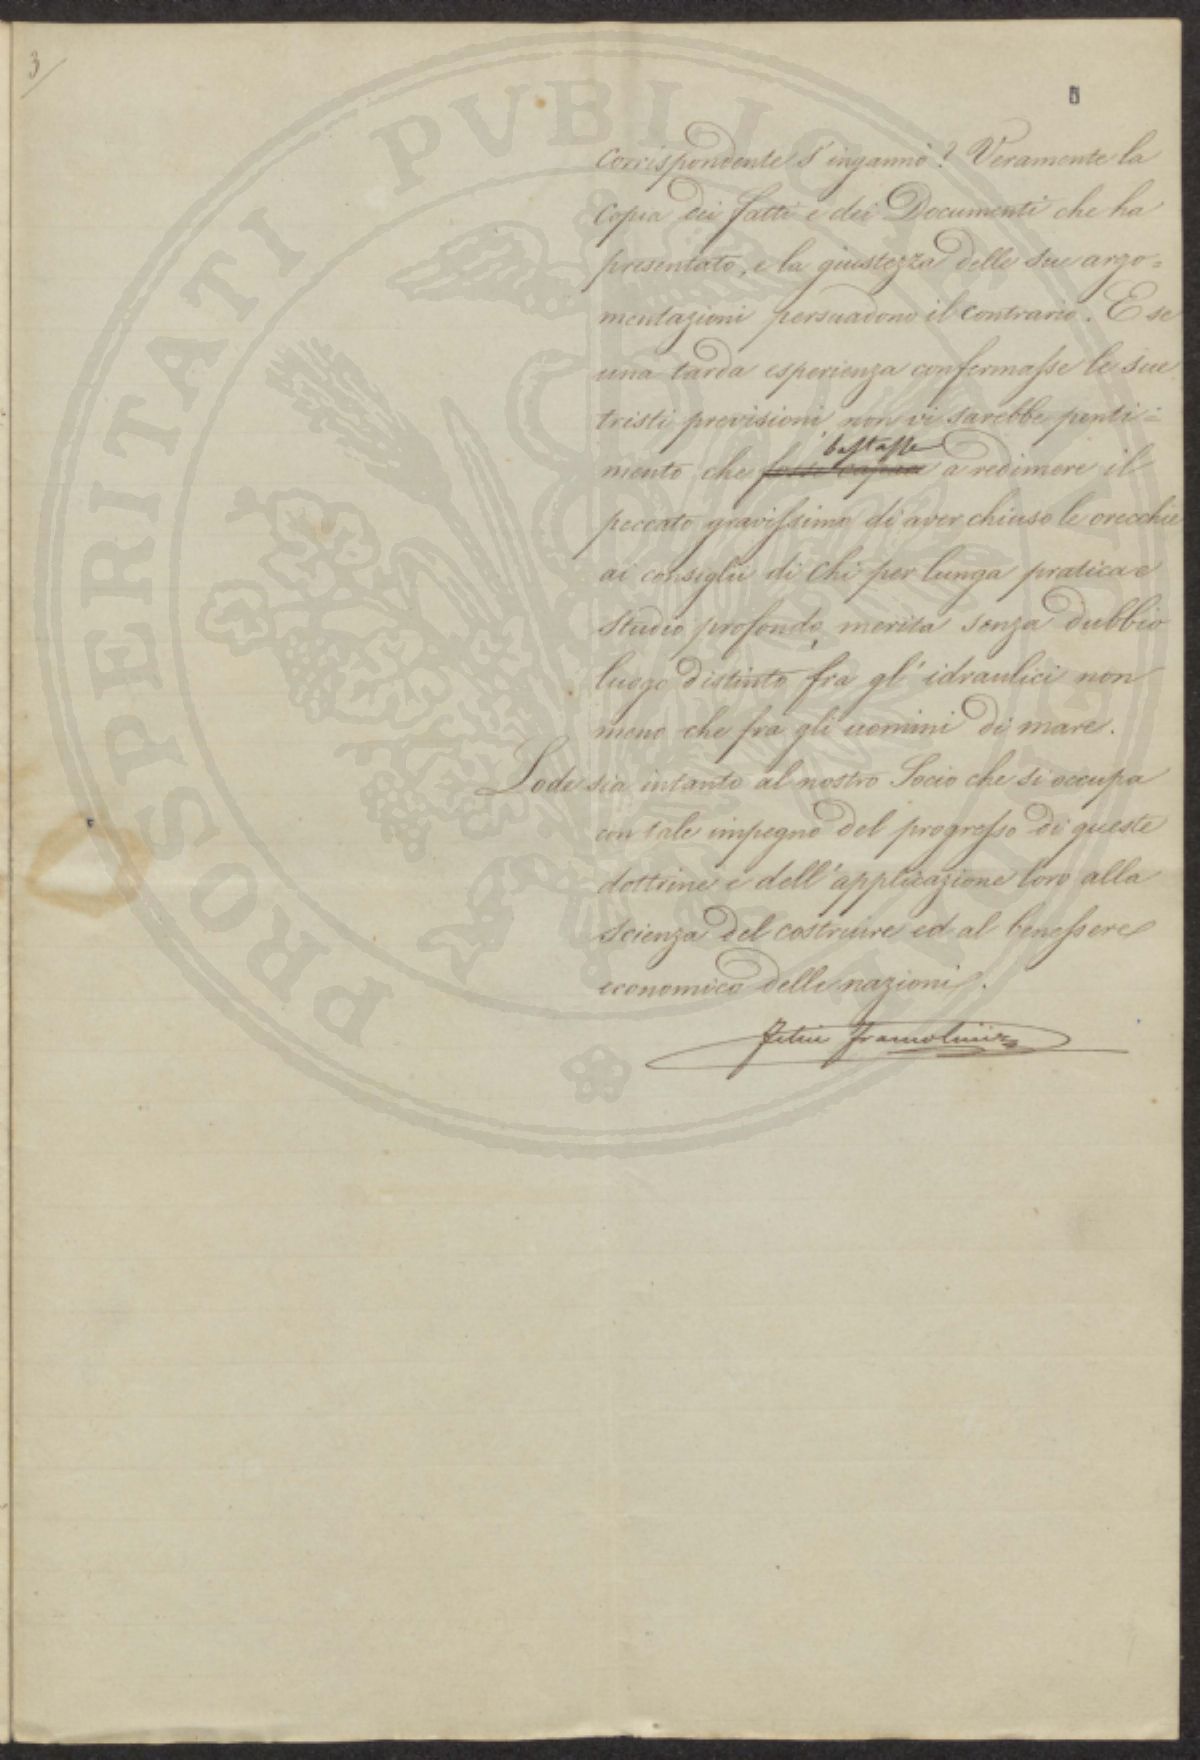 3
corrispondente s'ingannò? Veramente la
copia dei fatti e dei Documenti che ha
presentato, e la giustezza delle sue argo=
mentazioni persuadono il contrario. E se
una tarda esperienza confermasse le sue
tristi previsioni non vi sarebbe penti=
bastasse
mento che fosse capace a redimere il
peccato gravissimo di aver chiuso le orecchie
ai consiglii di chi per lunga pratica e
studio profondo, merita senza dubbio
luogo distinto fra gl'idraulici non
meno che fra gli uomini di mare.
Lode sia intanto al nostro Socio che si occupa
con tale impegno del progresso di queste
dottrine e dell'applicazione loro alla
scienza del costruire ed al benessere
economico delle nazioni.
Felice Francolini
PROSPERITATI PVBLICAE